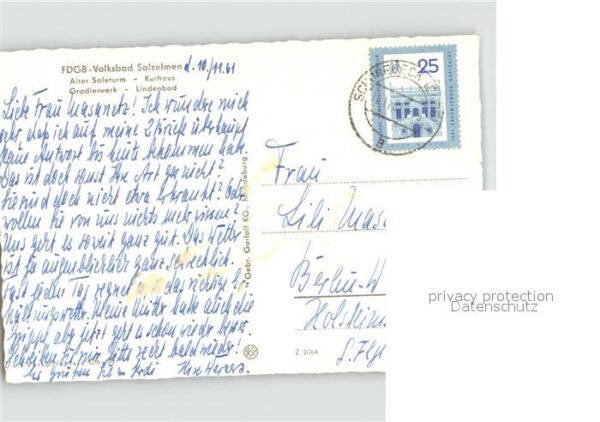 FDGB-Volksbad Salzelmen
d. 10./11.61
Alter Soleturm - Kurhaus
Gradierwerk - Lindenbad
Liebe Frau Masanetz! Ich wundere mich
sehr daß ich auf meine 2 Briefe überhaupt
keine Antwort bis heute bekommen habe.
Das ist doch sonst Ihre Art gar nicht?
Sie sind doch nicht etwa erkrankt? Oder
wollen Sie von uns nichts mehr wissen?
Uns geht es soweit ganz gut. Das Wetter
ist ja augenblicklich ganz schrecklich.
Fast jeden Tag regnet es das richtige Er-
kältungswetter. Meine Mutter hatte auch die
Grippe aber jetzt geht es schon wieder besser.
Schreiben Sie mir bitte recht bald wieder.
Es grüßen Sie Ihre Werners
Gebr. Garloff KG., Magdeburg
Z 2064
25
SCHÖNEBECK
Frau
Lili Masa
Berlin-W
Holstein
privacy protection
Datenschutz